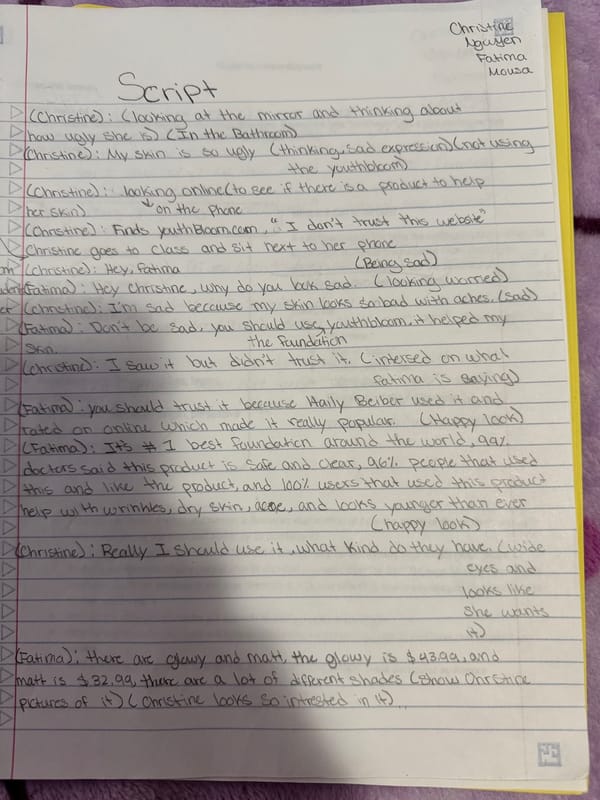 Christine
Nguyen
Fatima
Mousa
Script
(Christine): (looking at the mirror and thinking about
how ugly she is) (In the Bathroom)
(Christine): My skin is so ugly (thinking, sad expression) (not using
the youthbloom)
(Christine): looking online (to see if there is a product to help
her skin) on the phone
(Christine): Finds youthbloom.com, "I don't trust this website"
Christine goes to class and sit next to her phone
(Christine): Hey, Fatima (Being sad)
(Fatima): Hey Christine, why do you look sad. (looking worried)
(Christine): I'm sad because my skin looks so bad with aches. (sad)
(Fatima): Don't be sad, you should use youthbloom, it helped my
skin. the foundation
(Christine): I saw it but didn't trust it. (intersed on what
fatima is saying)
(Fatima): you should trust it because Haily Beiber used it and
rated on online which made it really popular. (Happy look)
(Fatima): It's #1 best foundation around the world, 99%
doctors said this product is safe and clear, 96% people that used
this and like the product, and 100% users that used this product
help with wrinkles, dry skin, acne, and looks younger than ever
(happy look)
(Christine): Really I should use it, what kind do they have. (wide
eyes and
looks like
she wants
it)
(Fatima): there are glowy and matt, the glowy is $43.99, and
matt is $32.99, there are a lot of different shades (show Christine
pictures of it) (Christine looks so intrested in it)